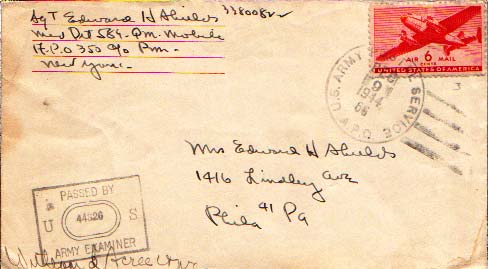 Sgt Edward H Shields 33800822
Med Det 584 Qm. Mobile
A.P.O 350 c/o Pm.
New York
AIR 6 MAIL
CENTS
UNITED STATES OF AMERICA
U.S. ARMY SERVICE
A.P.O.
9
1944
Mrs Edward H Shields
1416 Lindley Ave
Phila 41 Pa
PASSED BY
U 44526 S
ARMY EXAMINER